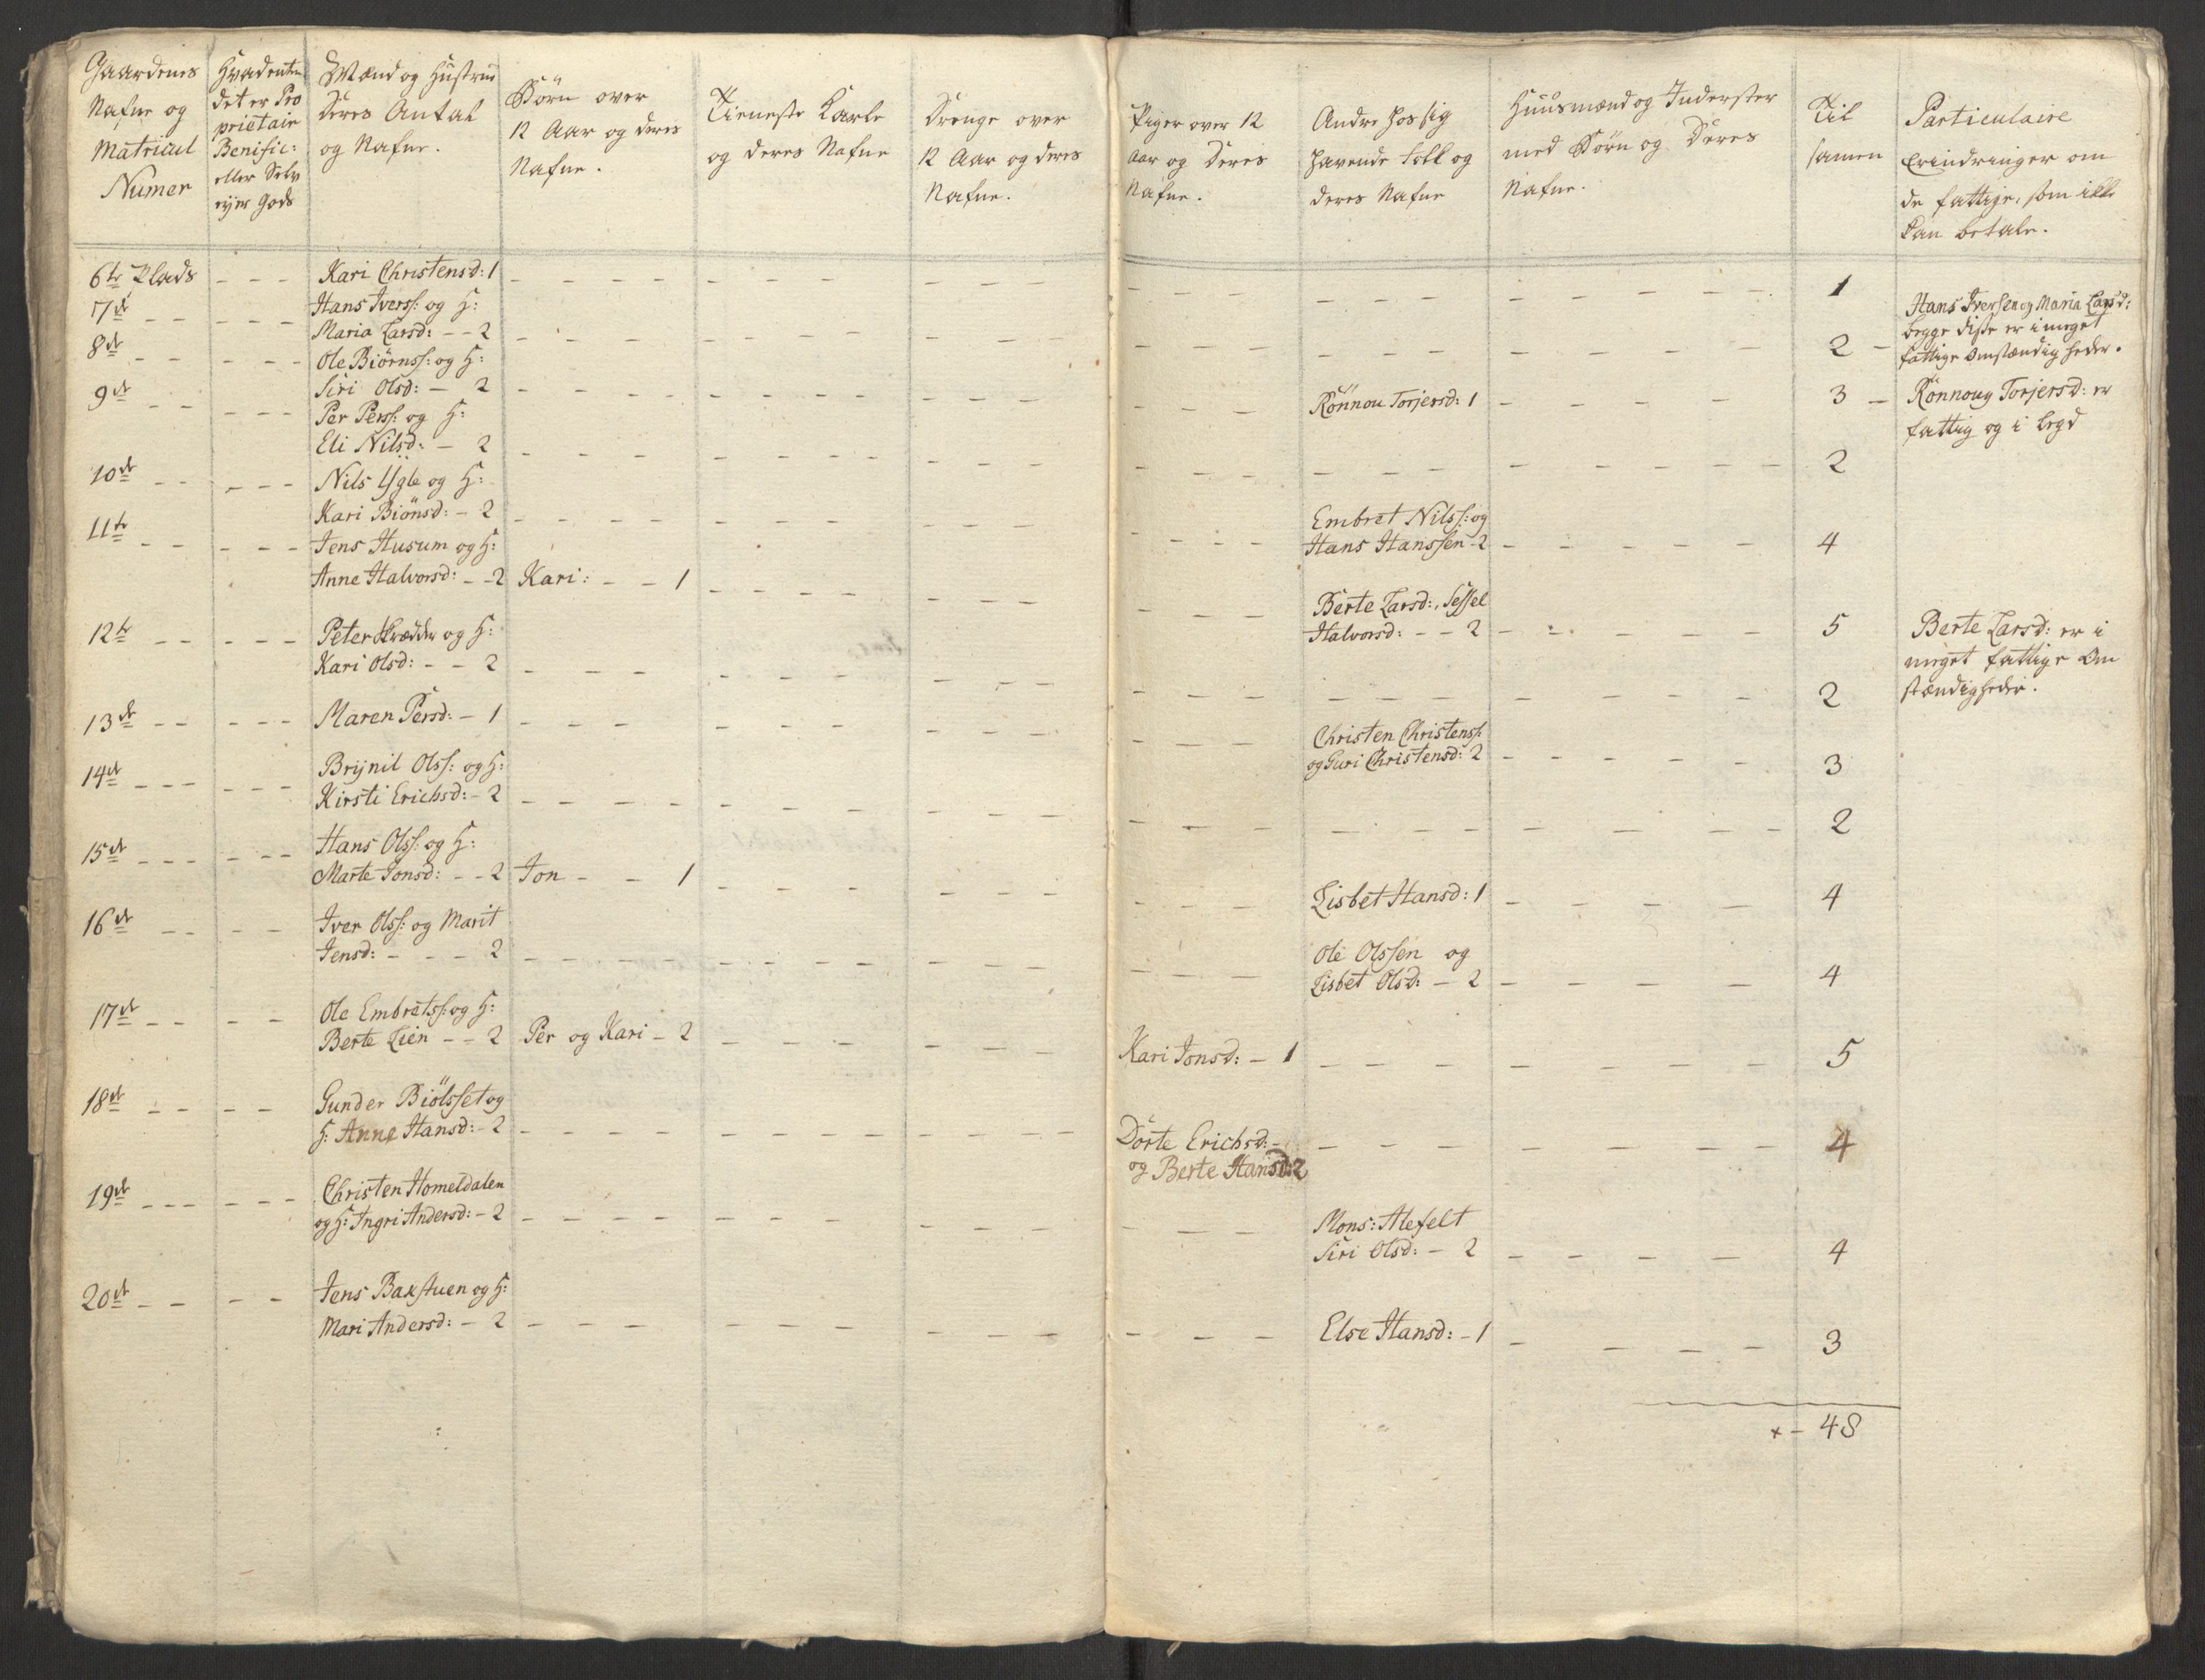 Gaardenes
Nafne og
Matricul
Numer
Hvadenten
det er Pro
prietair
Benific:
eller Selv
eijer Gods
Mænd og Hustrue
Deres Antal
og Nafne.
Börn over
12 Aar og deres
Nafne.
Tieneste Karle
og deres Nafne
Drenge over
12 Aar og deres
Nafne.
Piger over 12
Aar og Deres
Nafne.
Andre hos sig
havende Folk og
deres Nafne
Huusmænd og Inderster
med Börn og Deres
Nafne.
Til
samen
Particulaire
Erindringer om
de fattige, som ikke
kan betale.
6te Plads - - - Kari Christensd: 1 - - - 1
7de - - Hans Iverss: og H:
Maria Larsd: - - 2 - - - 2 -
Hans Iversen og Maria Larsd:
begge disse er i meget
fattige Omstændigheder.
8de - - Ole Biörnss: og H:
Siri Olsd: - 2 - - - Rönnou Torjersd: 1 - - - 3 -
Rönnoug Torjersd: er
fattig og i Legd
9de - - Per Perss: og H:
Eli Nilsd: - 2 - - - 2
10de - - Nils Ygle og H:
Kari Biönsd: - 2 - - - Embret Nilss: og
Hans Hanssen - 2 - - - 4
11te - - Jens Husum og H:
Anne Halvorsd: - - 2 Kari: - - 1 - - - Berte Larsd:, Sessel
Halvorsd: - - 2 - - - 5
Berte Larsd: er i
meget fattige Om
stændigheder.
12te - - Peter Skrædder og H:
Kari Olsd: - - 2 - - - 2
13de - - Maren Persd: - 1 - - - Christen Christenss:
og Guri Christensd: 2 - - - 3
14de - - - Brÿnil Olss: og H:
Kirsti Erichsd: - 2 - - - 2
15de - - - Hans Olss: og H:
Marte Jonsd: - - 2 Jon - - 1 - - - Lisbet Hansd: 1 - - - 4
16de - - Iver Olss: og Marit
Jensd: - - - 2 - - - Ole Olssen og
Lisbet Olsd: - 2 - - - 4
17de - - Ole Embretss: og H:
Berte Lien - - 2 Per og Kari - 2 - - - Kari Jonsd: - 1 - - - 5
18de - - Gunder Biölsset og
H: Anne Hansd: - 2 - - - Dorte Erichsd: -
og Berte Hansd: 2 - - - 4
19de - - - Christen Homeldalen
og H: Ingri Andersd: - 2 - - - Mons: Alefelt
Siri Olsd: - 2 - - - 4
20de - - Jens Bakstuen og H:
Mari Andersd: - 2 - - - Else Hansd: - 1 - - - 3
x - 48